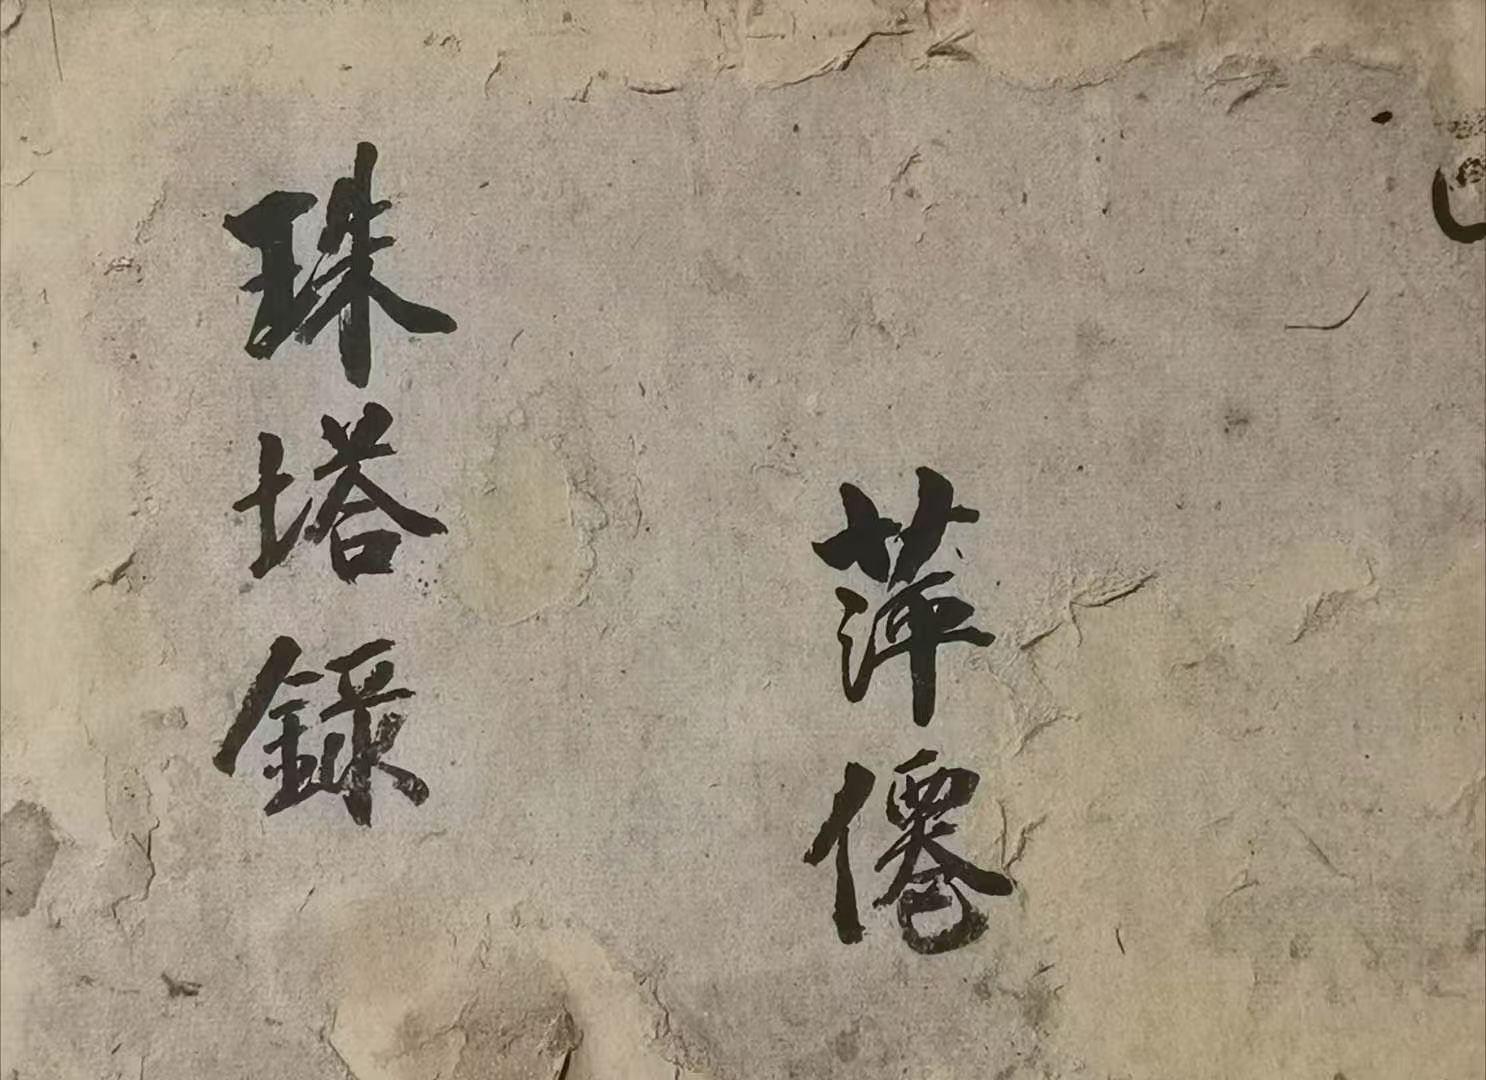 萍僊
珠塔錄